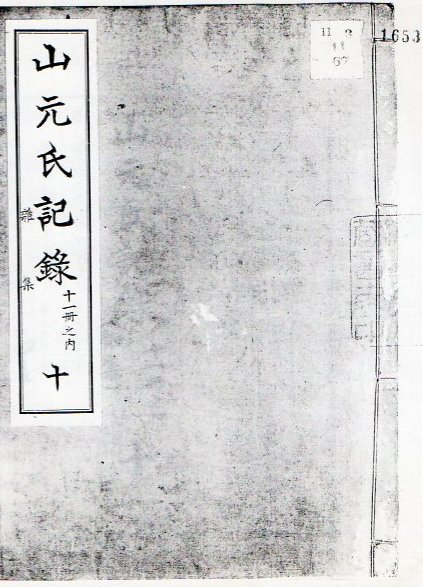 山元氏記錄
雜集
十一冊之内
十
11
67
1653